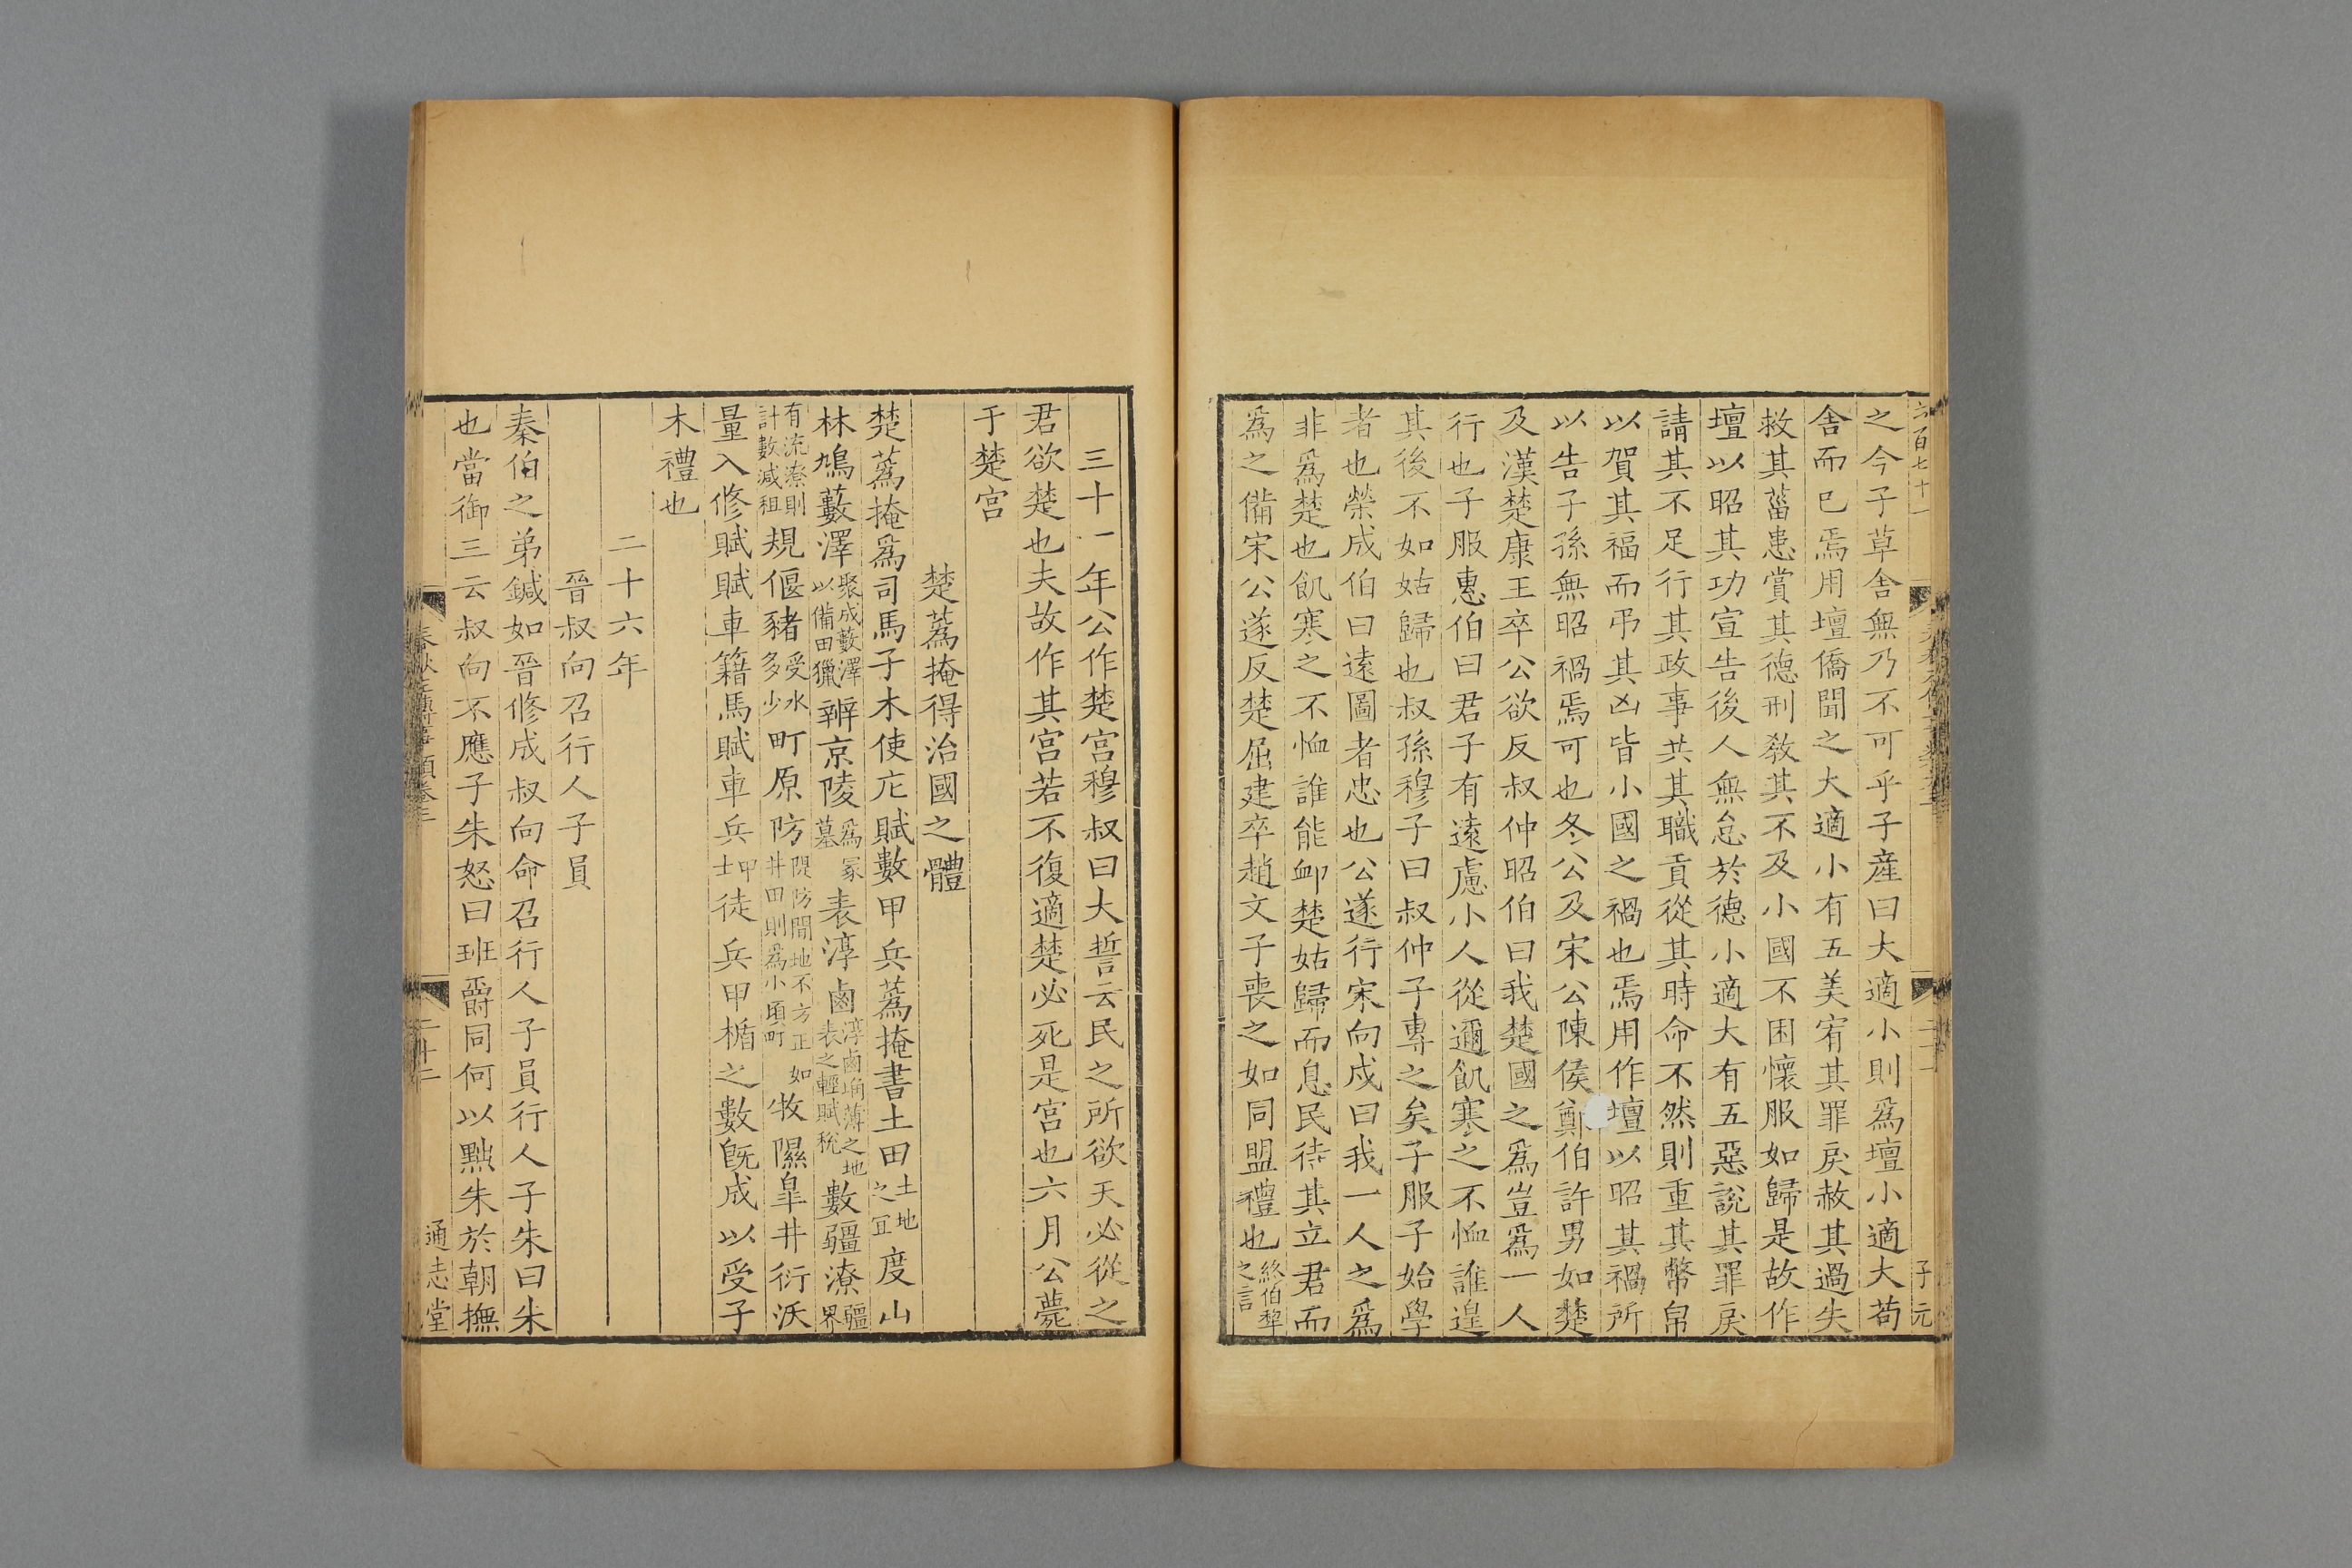 六百七十一
子元
之今子草舍無乃不可乎子産曰大適小則爲壇小適大苟
舍而已焉用壇僑聞之大適小有五美宥其罪戾赦其過失
救其菑患賞其德刑敎其不及小國不困懷服如歸是故作
壇以昭其功宣告後人無怠於德小適大有五惡說其罪戾
請其不足行其政事共其職貢從其時命不然則重其幣帛
以賀其福而弔其凶皆小國之禍也焉用作壇以昭其禍所
以告子孫無昭禍焉可也冬公及宋公陳侯鄭伯許男如楚
及漢楚康王卒公欲反叔仲昭伯曰我楚國之爲豈爲一人
行也子服惠伯曰君子有遠慮小人從邇飢寒之不恤誰遑
其後不如姑歸也叔孫穆子曰叔仲子專之矣子服子始學
者也榮成伯曰遠圖者忠也公遂行宋向戍曰我一人之爲
非爲楚也飢寒之不恤誰能䘏楚姑歸而息民待其立君而
爲之備宋公遂反楚屈建卒趙文子喪之如同盟禮也終伯犂之言
三十一年公作楚宮穆叔曰大誓云民之所欲天必從之
君欲楚也夫故作其宮若不復適楚必死是宮也六月公薨
于楚宮
楚蔿掩得治國之體
楚蔿掩爲司馬子木使庀賦數甲兵蔿掩書土田土地之宜度山
林鳩藪澤聚成藪澤以備田獵辨京陵爲冢墓表淳鹵淳鹵埆薄之地表之輕賦稅數疆潦疆界
有流潦則計數減租規偃豬受水多少町原防隄防間地不方正如井田則爲小頃町牧隰皐井衍沃
量入修賦賦車籍馬賦車兵甲士徒兵甲楯之數旣成以受子
木禮也
二十六年
晉叔向召行人子員
秦伯之弟鍼如晉修成叔向命召行人子員行人子朱曰朱
也當御三云叔向不應子朱怒曰班爵同何以黜朱於朝撫
通志堂